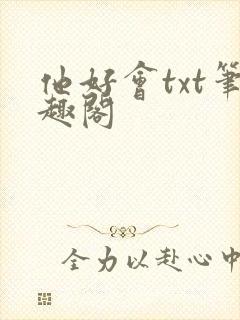 他好會txt筆
趣閣
全力以赴心中